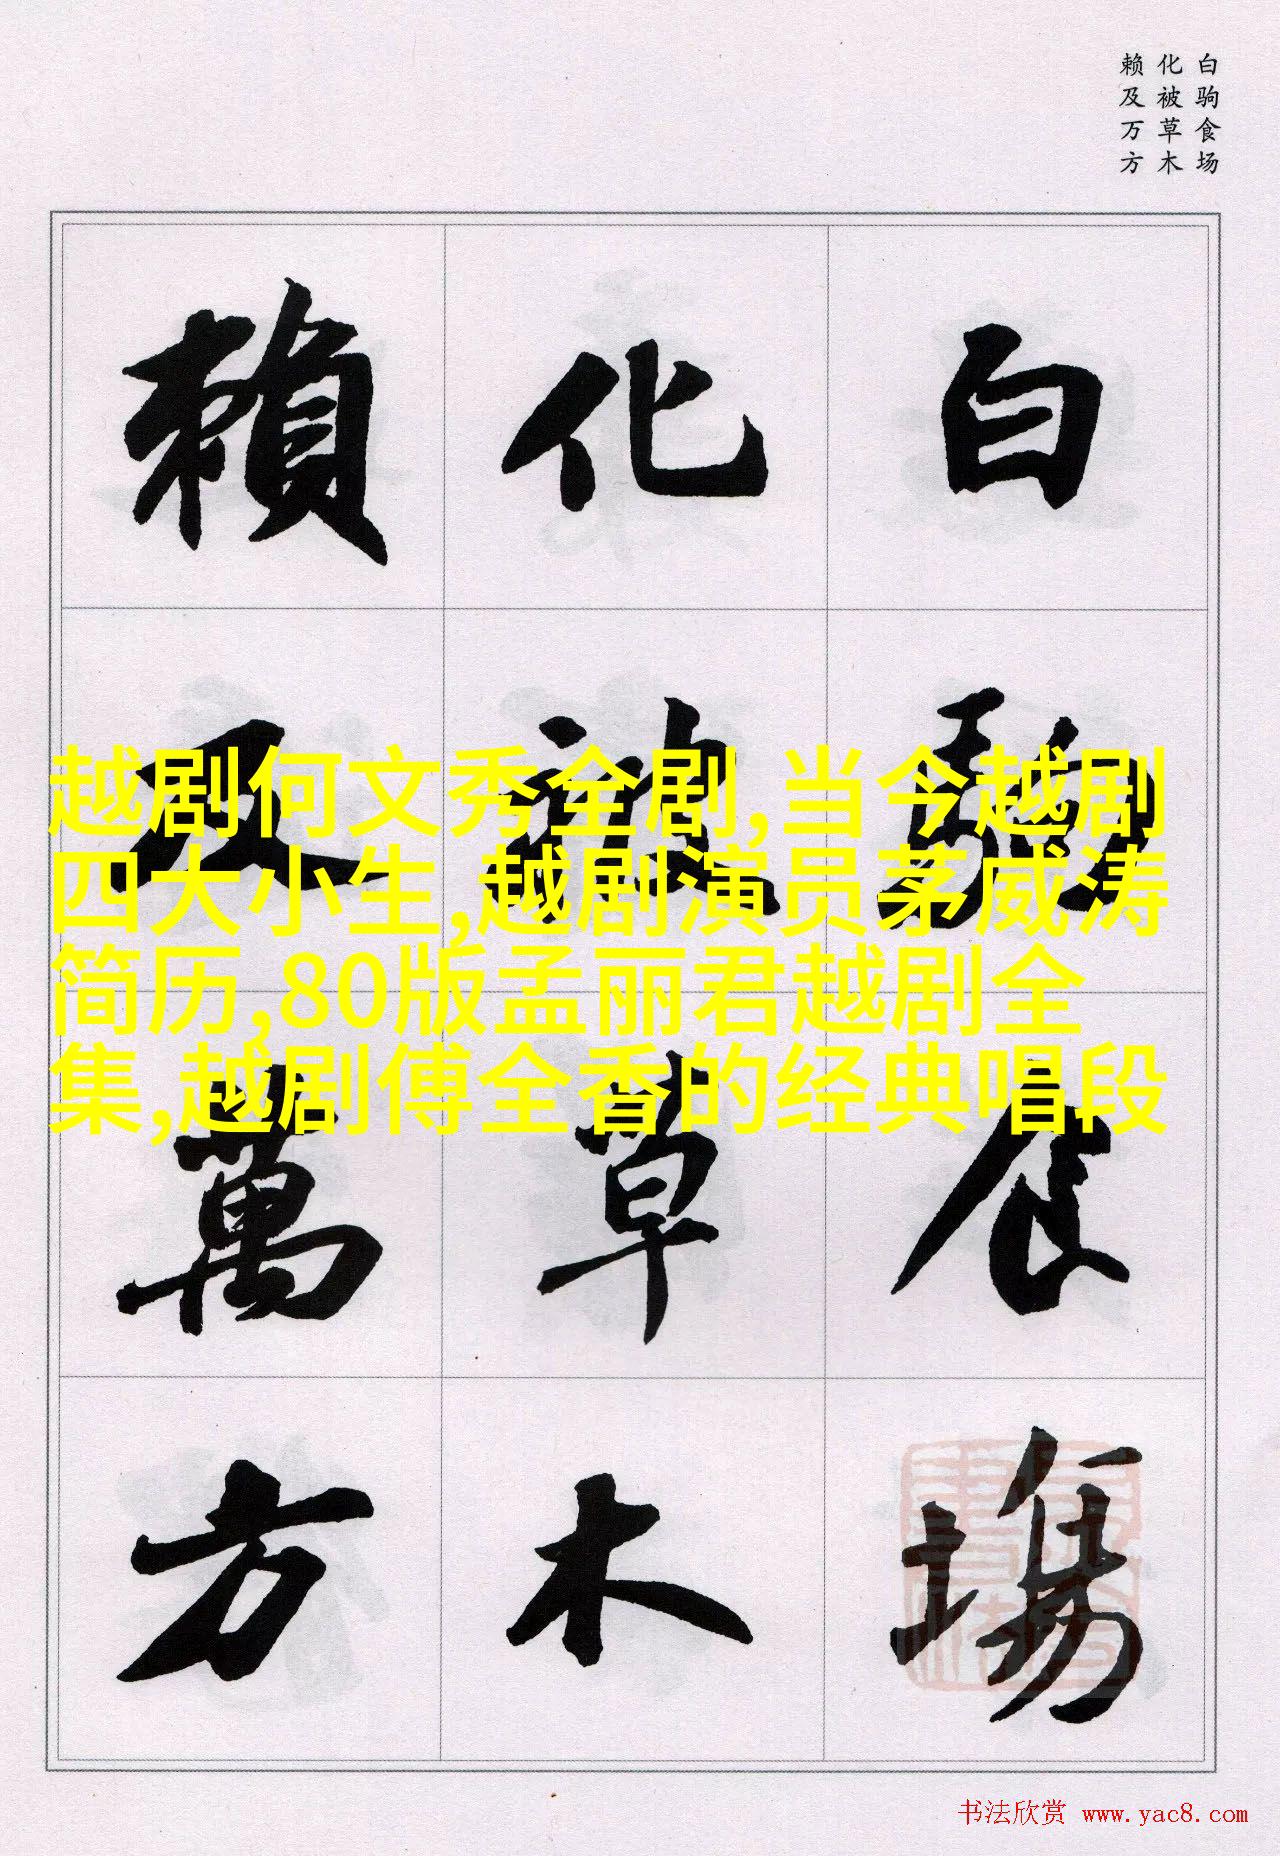 白驹食场
化被草木
赖及万方
白駒食場
化被草木
賴及萬方
越剧何文秀全剧,当今越剧
四大小生,越剧演员茅威涛
简历,80版孟丽君越剧全
集,越剧傅全香的经典唱段
书法欣赏 www.yac8.com